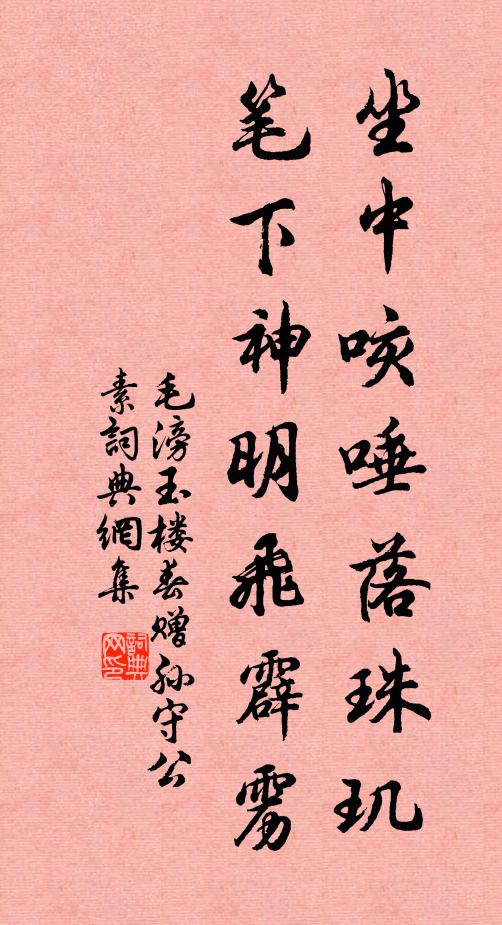 坐中咳唾落珠玑
笔下神明飞霹雳
毛滂玉楼春赠孙守公
素词典網集
詞典網印